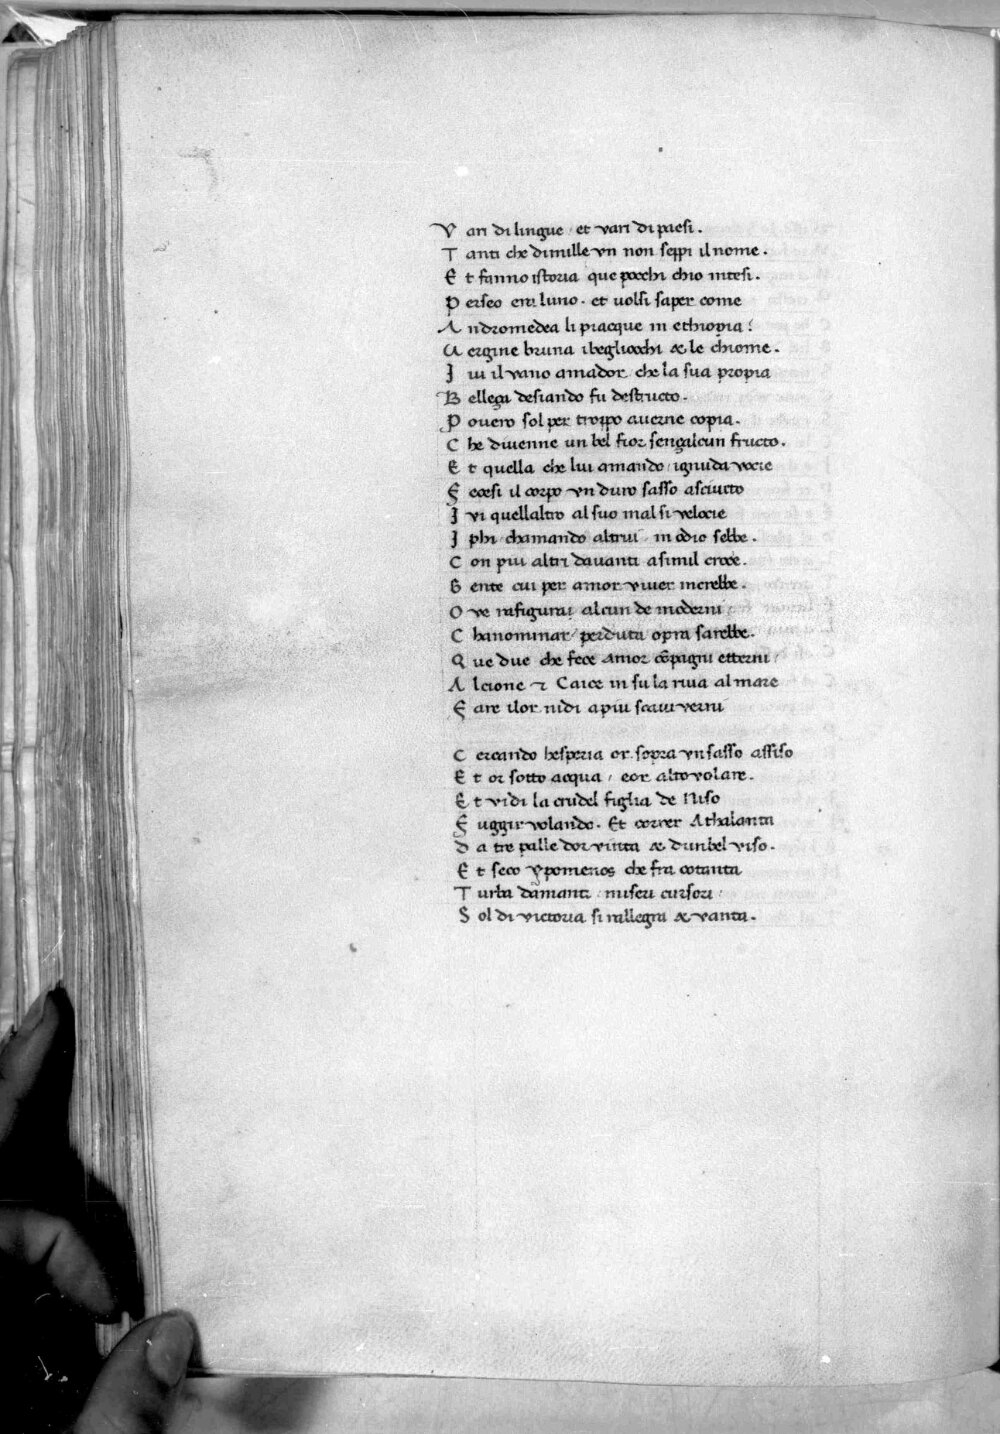 V ari di lingue et vari di paesi.
T anti che dimille vn non seppi il nome.
E t fanno istoria que pocchi chio intesi.
P erseo era luno. et uolsi saper come
A ndromedea li piacque in ethiopia:
U ergine bruna ibegliocchi & le chiome.
J ui il vano amador che la sua propia
B elleça desiando fu destructo.
P ouero sol per troppo auerne copia.
C he diuenne un bel fior sençalcun fructo.
E t quella che lui amando ignuda vocie
F ecesi il corpo vn duro sasso asciucto
J vi quellaltro al suo mal si velocie
J phi chamando altrui in odio sebbe.
C on piu altri dauanti asimil croce.
G ente cui per amor viuer increbbe.
O ve rafigurai alcun de moderni
C hanominar perduta opra sarebbe.
Q ue due che fece Amor cõpagni etterni
A lcione ⁊ Ceice in su la riua al mare
F are ilor nidi apiu scaui verni

C ercando hesperia or sopra vn sasso assiso
E t or sotto acqua / eor alto volare.
E t vidi la crudel figlia de Niso
F uggir volando. Et correr Athalanta
D a tre palle dor vinta & dunbel viso.
E t seco ypomenos che fra cotanta
T urba damanti miseri cursori
S ol di victoria si rallegra & vanta.